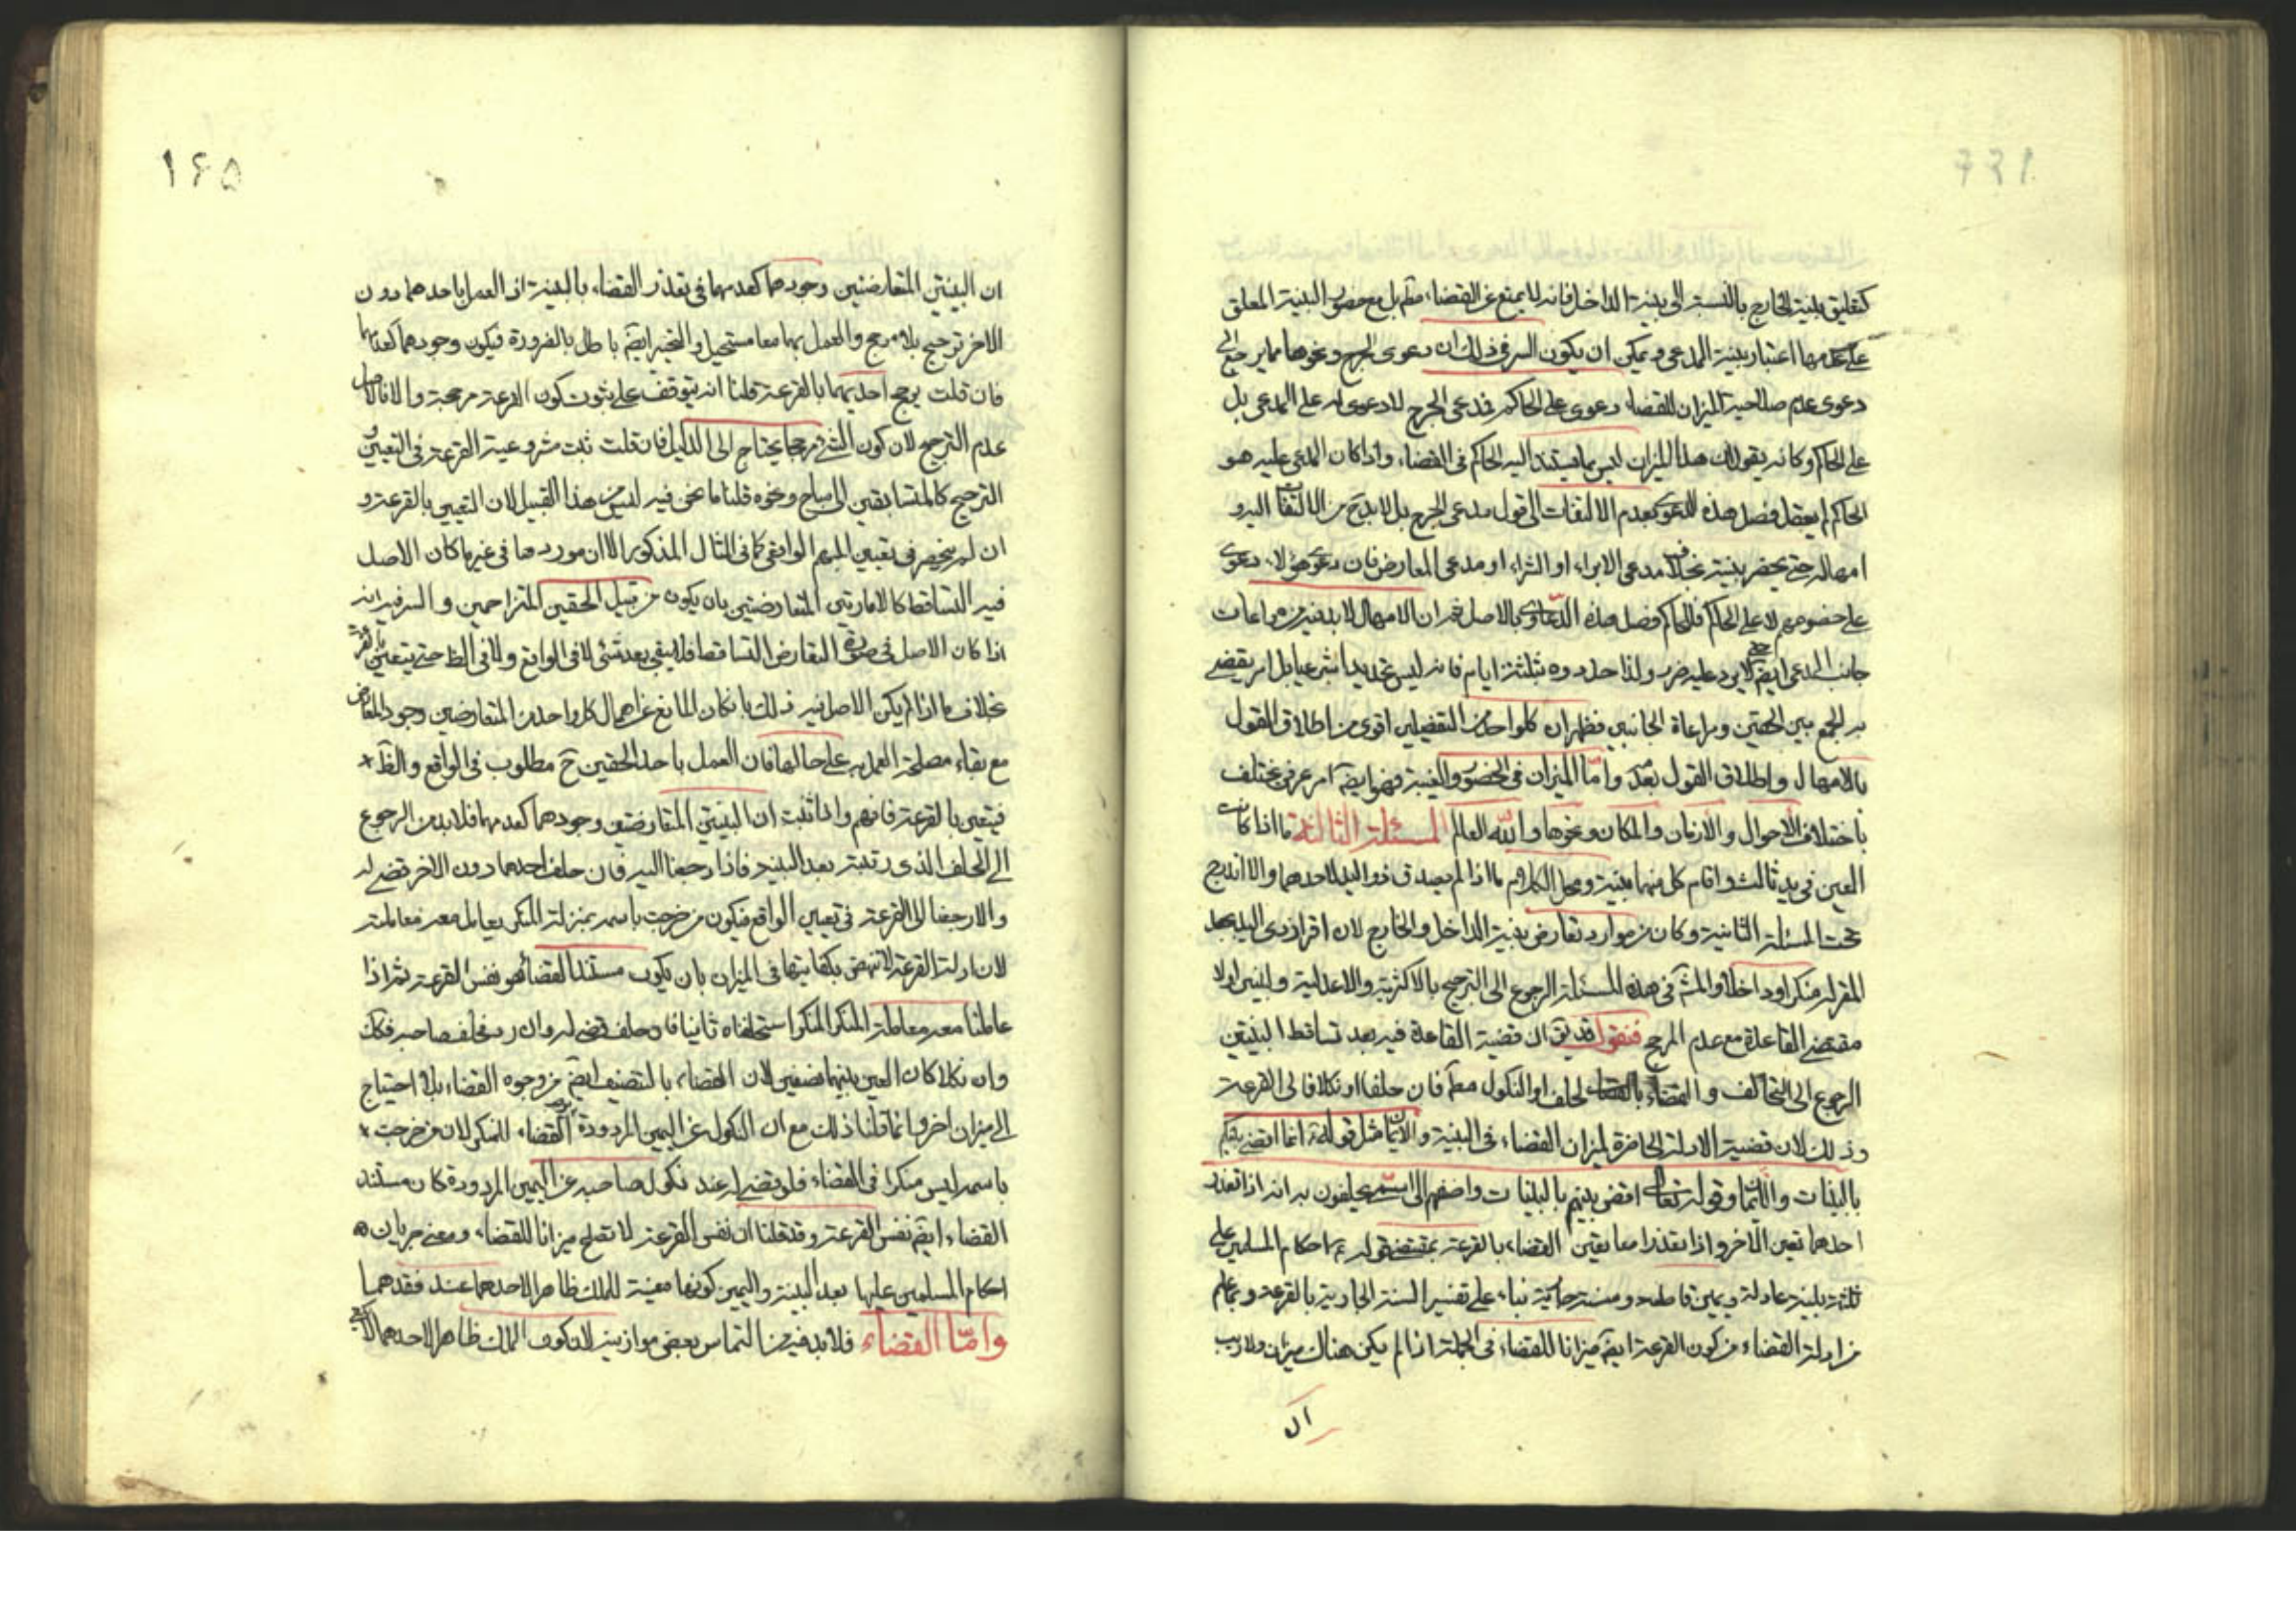 كتعليق بينة الخارج بالنسبة الى بينة الداخل فانه لا يمنع عن القضاء مطم بل مع حضور البينة المعلق
على عدمها اعتبار بينة المدعى ويمكن ان يكون السر فى ذلك ان دعوى الجرح ونحوها مما يرجع الى
دعوى عدم صلاحية الميزان للقضاء دعوى على الحاكم فمدعى الجرح لا دعوى له على المدعى بل
على الحاكم وكانه يقول ان هذا الميزان ليس مما يستند اليه الحاكم فى القضاء واذا كان المدعى عليه هو
الحاكم لم يعقل فصل هذه الدعوى بعدم الالتفات الى قول مدعى الجرح بل لا بد ح من الالتفات اليه و
امهاله حتى يحضر بينة بخلاف مدعى الابراء او الشراء او مدعى المعارض فان دعوى هؤلاء دعوى
على خصومهم لا على الحاكم فللحاكم فصل هذه الدعاوى بالاصل نعم ان الامهال لا بد فيه من مراعات
جانب المدعى ايضا حتى لا يرد عليه ضرر ولذا حددوه بثلثة ايام فانه ليس تحديدا شرعيا بل امر يقضى
به الجمع بين الحقين ومراعاة الجانبين فظهر ان كلوا حد من التفصيلين اقوى من اطلاق القول
بالامهال واطلاق القول بعدمه واما الميزان فى الحضور والغيبة فهو ايضا امر عرفى يختلف
باختلاف الاحوال والازمان والمكان ونحوها والله العالم المسئلة الثالثة ما اذا كانت
العين فى يد ثالث واقام كل منهما بينة ومحل الكلام ما اذا لم يصدق ذو اليد لاحدهما والا اندرج
تحت المسئلة الثانية وكان من موارد تعارض بينة الداخل والخارج لان اقرار ذى اليد يجعل
المقر له منكرا وداخلا والمش فى هذه المسئلة الرجوع الى الترجيح بالاكثرية والاعدلية ولنبين اولا
مقتضى القاعدة مع عدم المرجح فنقول قد يق ان قضية القاعدة فيه بعد تساقط البينتين
الرجوع الى التحالف والقضاء بالحلف او النكول مطم فان حلفا او نكلا فالى القرعة
وذلك لان قضية الادلة الحاصرة لميزان القضاء فى البينة والايمان مثل قوله ص انما اقضى بينكم
بالبينات والايمان وقوله تعالى اقض بينهم بالبينات واضفهم الى اسمى يحلفون به انه اذا تعذر
احدهما تعين الاخر واذا تعذرا معا تعين القضاء بالقرعة بمقتضى قوله ع احكام المسلمين على
ثلثة بينة عادلة ويمين قاطعة وسنة جارية بناء على تفسير السنة الجارية بالقرعة ويعلم
من ادلة القضاء من كون القرعة ايضا ميزانا للقضاء فى الجملة اذا لم يكن هناك ميزان ولا ريب
ان
١۶۵
ان البينتين المتعارضتين وجودهما كعدمهما فى تعذر القضاء بالبينة اذ العمل باحدهما دون
الاخر ترجيح بلا مرجح والعمل بهما معا مستحيل والتخيير ايضا باطل بالضرورة فيكون وجودهما كعدمهما
فان قلت يرجح احديهما بالقرعة قلنا انه يتوقف على ثبوت كون القرعة مرجحة والا فالاصل
عدم الترجيح لان كون الشئ مرجحا يحتاج الى الدليل فان قلت ثبت مشروعية القرعة فى التعيين و
الترجيح كالمتسابقين الى مباح ونحوه قلنا ما نحن فيه ليس من هذا القبيل لان التعيين بالقرعة و
ان لم ينحصر فى تعيين المبهم الواقعى كما فى المثال المذكور الا ان موردها فى غير ما كان الاصل
فيه التساقط كالامارتين المتعارضتين بان يكون من قبيل الحقين المتزاحمين والسر فيه انه
اذا كان الاصل فى صورة التعارض التساقط فلا يبقى بعد شئ لا فى الواقع ولا فى الظ حتى يتعين بالقرعة
بخلاف ما اذا لم يكن الاصل فيه ذلك بان كان المانع عن اعمال كل واحد من المتعارضين وجود المعارض
مع بقاء مصلحة العمل به على حالها فان العمل باحد الحقين ح مطلوب فى الواقع والظ
فيتعين بالقرعة فافهم واذا ثبت ان البينتين المتعارضتين وجودهما كعدمهما فلا بد من الرجوع
الى الحلف الذى رتبته بعد البينة فاذا رجعنا اليه فان حلف احدهما دون الاخر قضى له
والا رجعنا الى القرعة فى تعيين الواقع فيكون من خرجت باسمه بمنزلة المنكر يعامل معه معاملته
لان ادلة القرعة لا تنهض بكفايتها فى الميزان بان يكون مستند القضاء هو نفس القرعة ثم اذا
عاملنا معه معاملة المنكر المنكر استحلفناه ثانيا فان حلف قضى له وان رد فحلف صاحبه فكك
وان نكلا كان العين بينهما نصفين لان القضاء بالتنصيف ايضا من وجوه القضاء بلا احتياج
الى ميزان اخر وانما قلنا ذلك مع ان النكول عن اليمين المردودة يوجب القضاء للمنكر لان من خرجت
باسمه ليس منكرا فى القضاء فلو قضى له عند نكول صاحبه عن اليمين المردودة كان مستند
القضاء ايضا نفس القرعة وقد قلنا ان نفس القرعة لا تصلح ميزانا للقضاء ومعنى جريان
احكام المسلمين عليها بعد البينة واليمين كونها معينة للملك ظاهرا لاحدهما عند فقدهما
واما القضاء فلا بد فيه من التماس بعض موازينه لان كون الملك ظاهرا لاحدهما